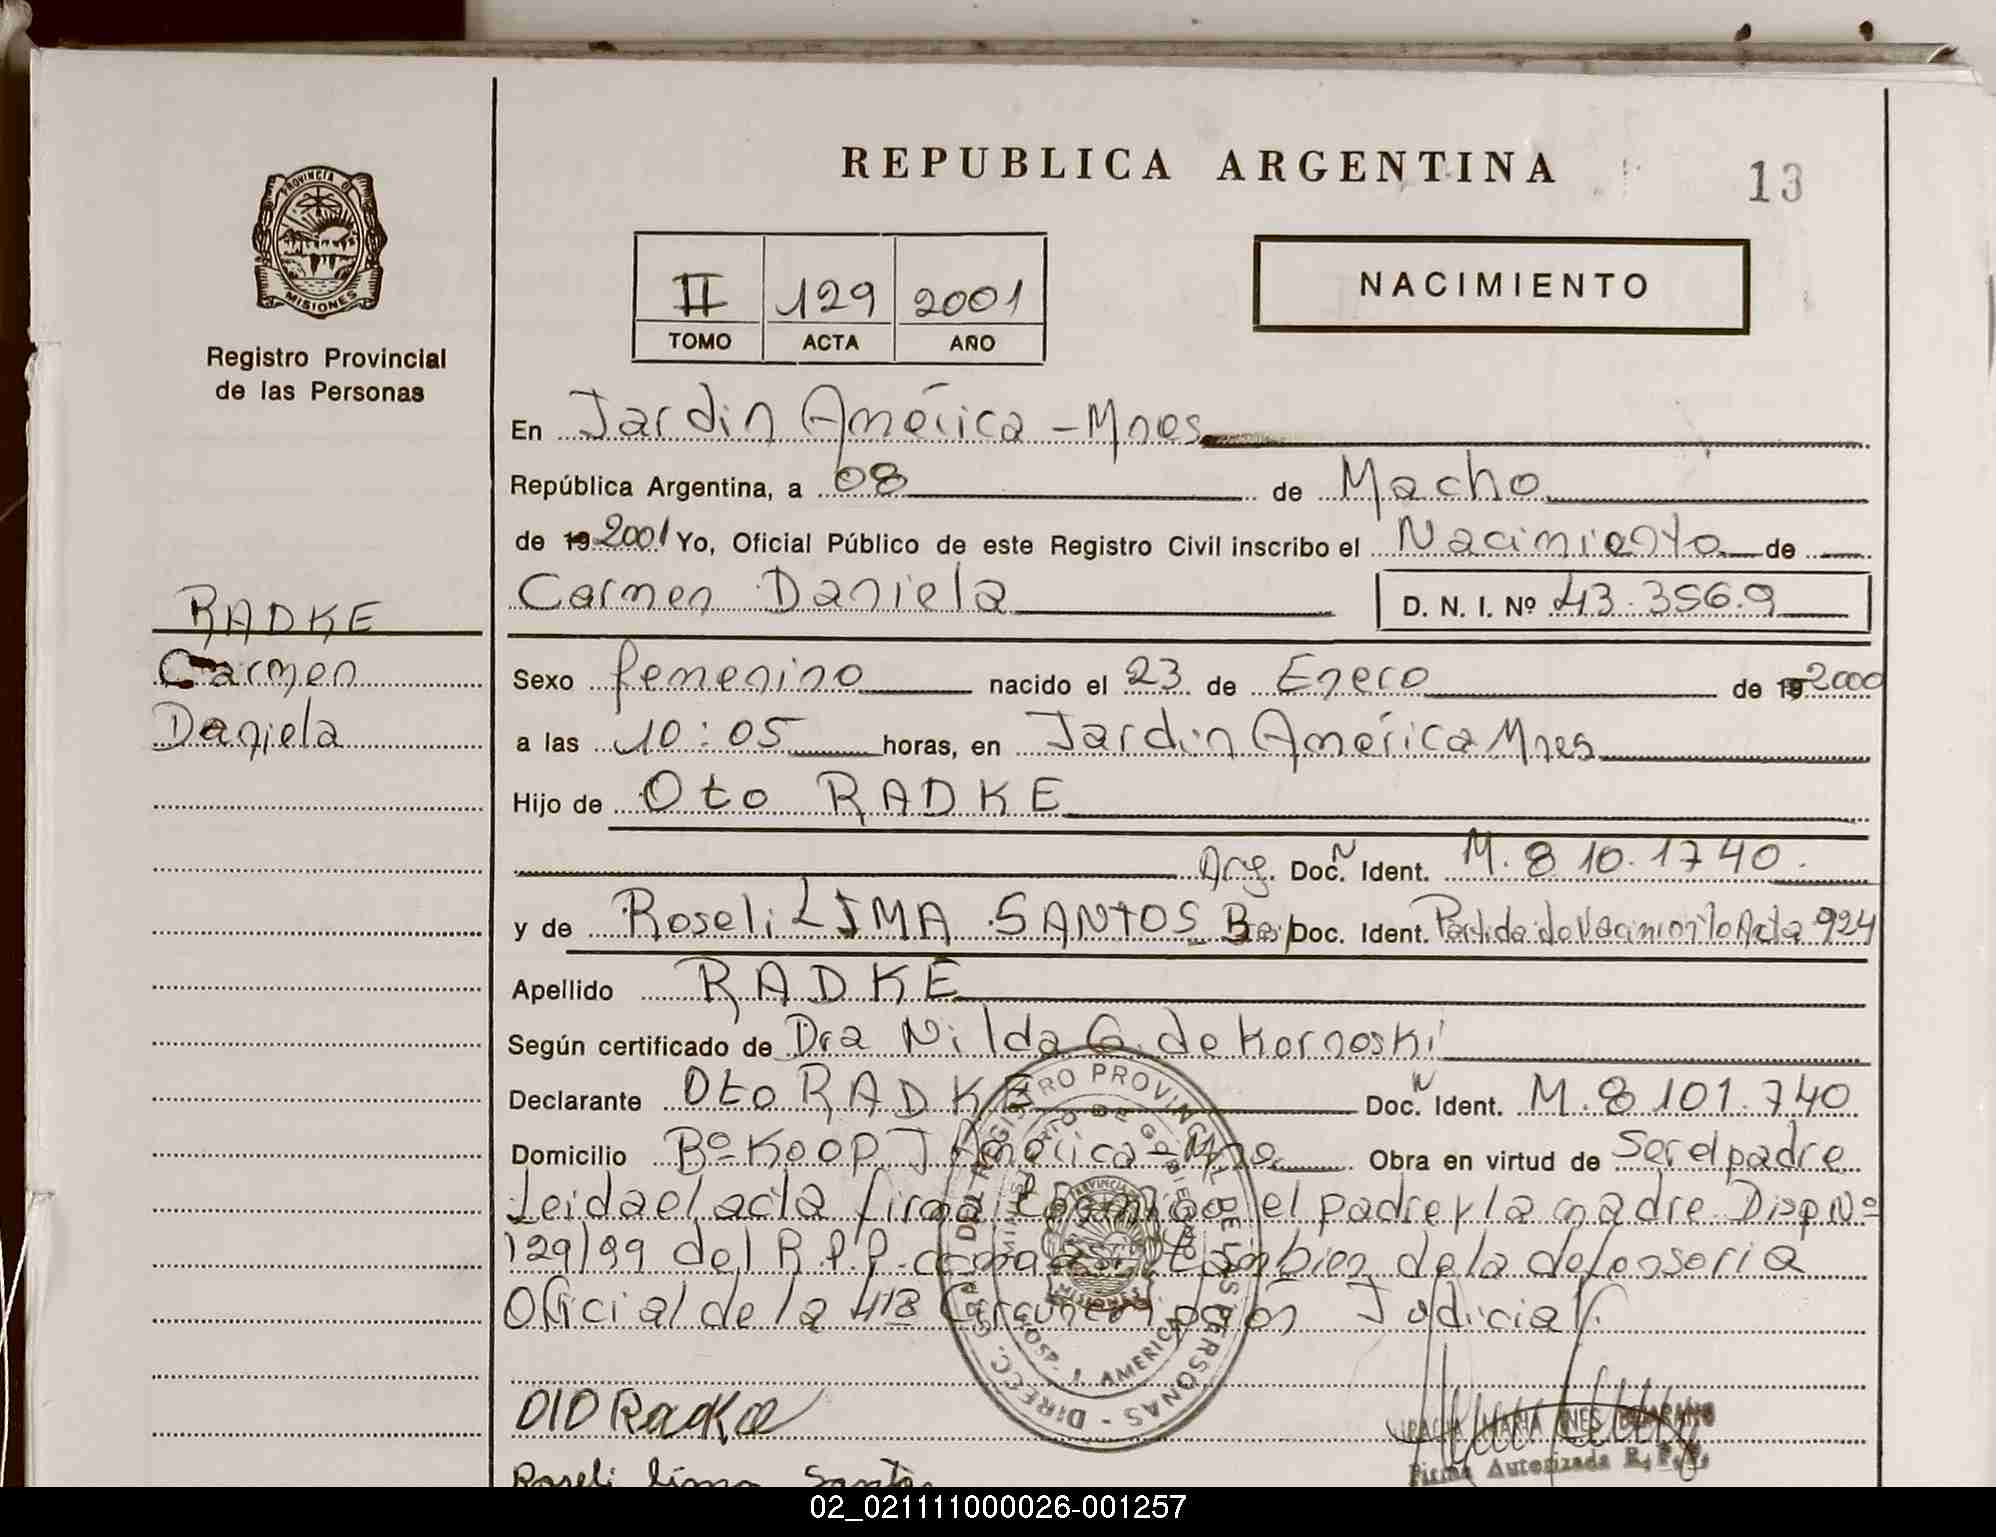 REPUBLICA ARGENTINA
13
PROVINCIA D
MISIONES
Registro Provincial
de las Personas
II 129 2001
TOMO ACTA AÑO
NACIMIENTO
En Jardin América - Mnes
República Argentina, a 08 de Macho
de 19 2001 Yo, Oficial Público de este Registro Civil inscribo el Nacimiento de
Carmen Daniela D. N. I. Nº 43.356.9
RADKE
Carmen
Daniela
Sexo femenino nacido el 23 de Enero de 19 2000
a las 10:05 horas, en Jardin América Mnes
Hijo de Oto RADKE
Arg. Doc. N Ident. M. 8 10.1740.
y de Roseli LIMA SANTOS Doc. Ident. Partida de Nacimiento Acta 924
Apellido RADKE
Según certificado de Dra Nilda G. de Kornoski
Declarante Oto RADKE Doc. N Ident. M. 8 101.740
Domicilio Bº Koop J América - Mne Obra en virtud de Ser el padre
Leida el acta firma el padre y la madre Disp Nº
129/99 del R.P.P. como asi tambien de la defensoria
Oficial de la 4ta Circunscripción Judicial.
REGISTRO PROVINCIAL DE LAS PERSONAS - DIRECC. GRAL. DEL
HOSP. J. AMERICA
OTO RadKe
MARIA INES
Firma Autorizada R. P. P.
Roseli Lima Santos
02_021111000026-001257